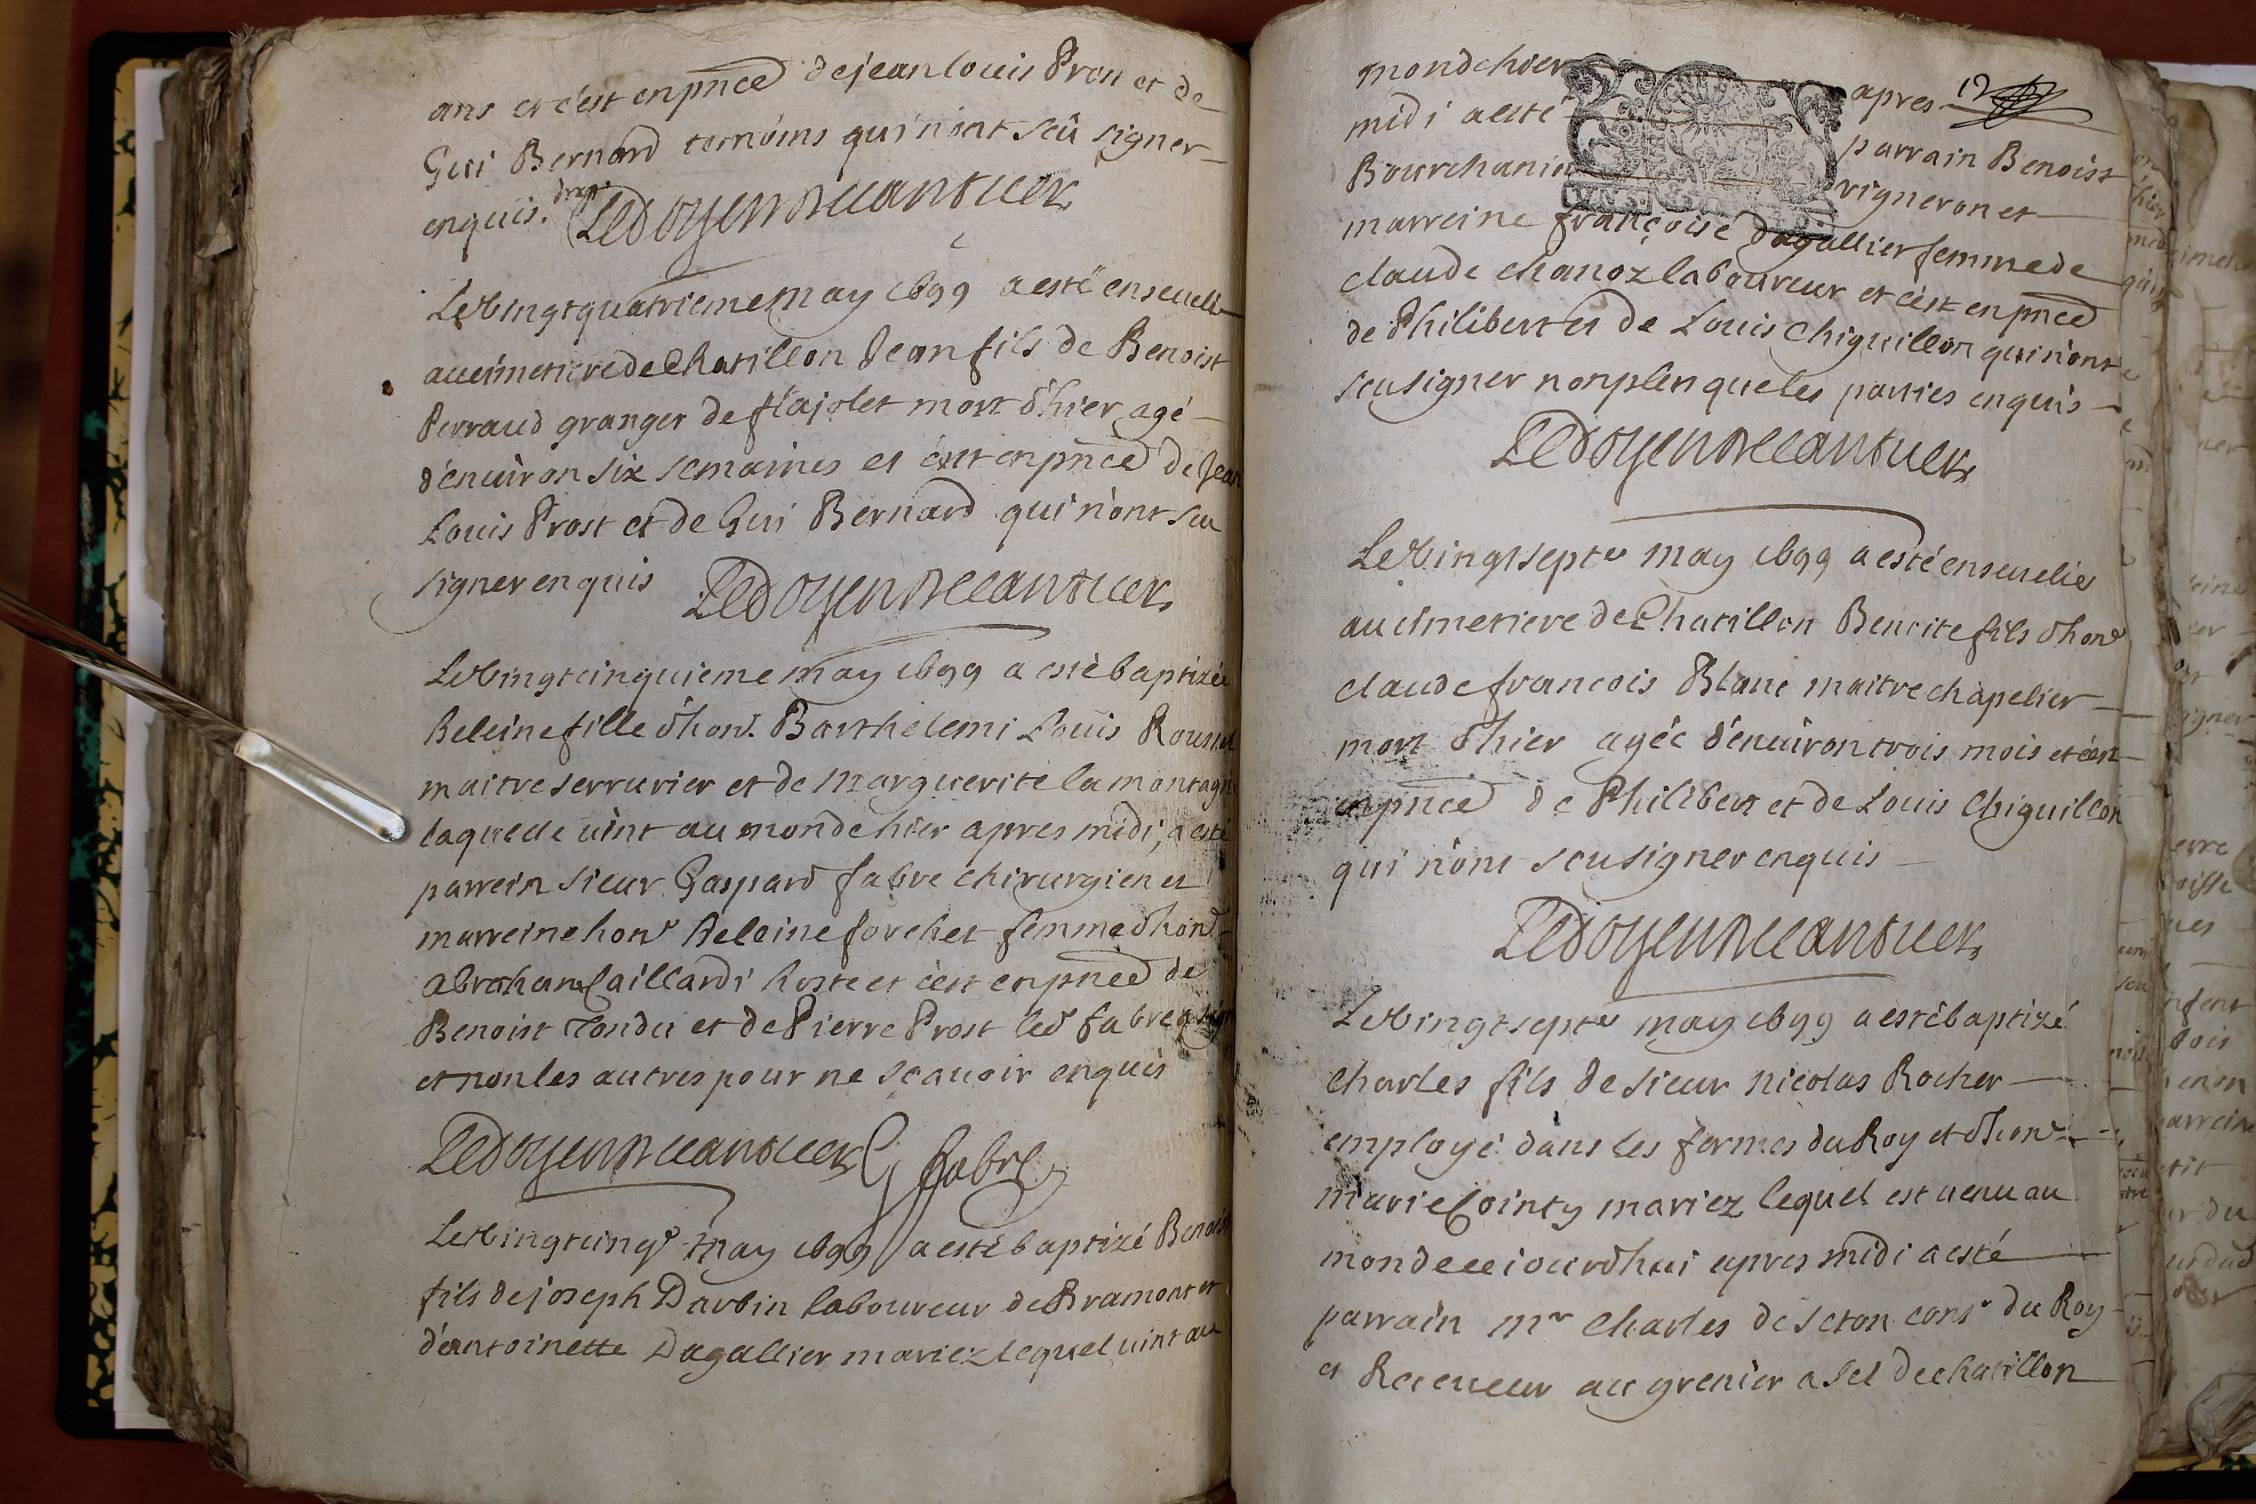 ans et c'est en pnce de jean louis Prost et de
Gui Bernard temoins qui n'ont sçû signer
enquis. Ledoyen
Le vingt quatrieme may 1699 a esté enseueli
au cimetiere de Chatillon Jean fils de Benoist
Perraud granger de flajolet mort d'hier agé
d'enuiron six semaines et c'est en pnce de Jean
Louis Prost et de Gui Bernard qui n'ont sçu
signer enquis Ledoyen
Le vingt cinquieme may 1699 a esté baptizée
heleine fille d'hon. Barthelemi Louis Roussel
maitre serrurier et de Marguerite la montagne
laquelle uint au monde hier apres midi, a esté
parrein sieur Gaspard fabre chirurgien et
marreine hon. heleine forchet femme d'hon.
abraham Caillardi hoste et c'est en pnce de
Benoist Tondu et de Pierre Prost led fabre a signé
et non les autres pour ne scauoir enquis
Ledoyen G fabre
Le vingt cinq.e may 1699 a esté baptizé Benoist
fils de joseph Darbin laboureur de Bramont et
d'éantoinette Dagallier mariez lequel uint au
monde hier apres 12
midi a esté parrain Benoist
Bourchanin vigneron et
marreine françoise Dagallier femme de
claude chanoz laboureur et c'est en pnce
de Philibert et de Louis Chiquillon qui n'ont
sceu signer non plus que les parties enquis
Ledoyen
Le vingt sept.e may 1699 a esté enseuelie
au cimetiere de Chatillon Benoite fils d'hon.
claude francois Blanc maitre chapelier
mort d'hier agée d'enuiron trois mois et c'est
en pnce de Philibert et de Louis Chiquillon
qui n'ont sceu signer enquis
Ledoyen
Le vingt sept.e may 1699 a esté baptizé
charles fils de sieur nicolas Rocher
employé dans les fermes du Roy et d'hon.
marie Cointy mariez lequel est uenu au
monde ceiourd'hui apres midi a esté
parrain mr charles de seton cons.r du Roy
et Receueur au grenier a sel de chatillon